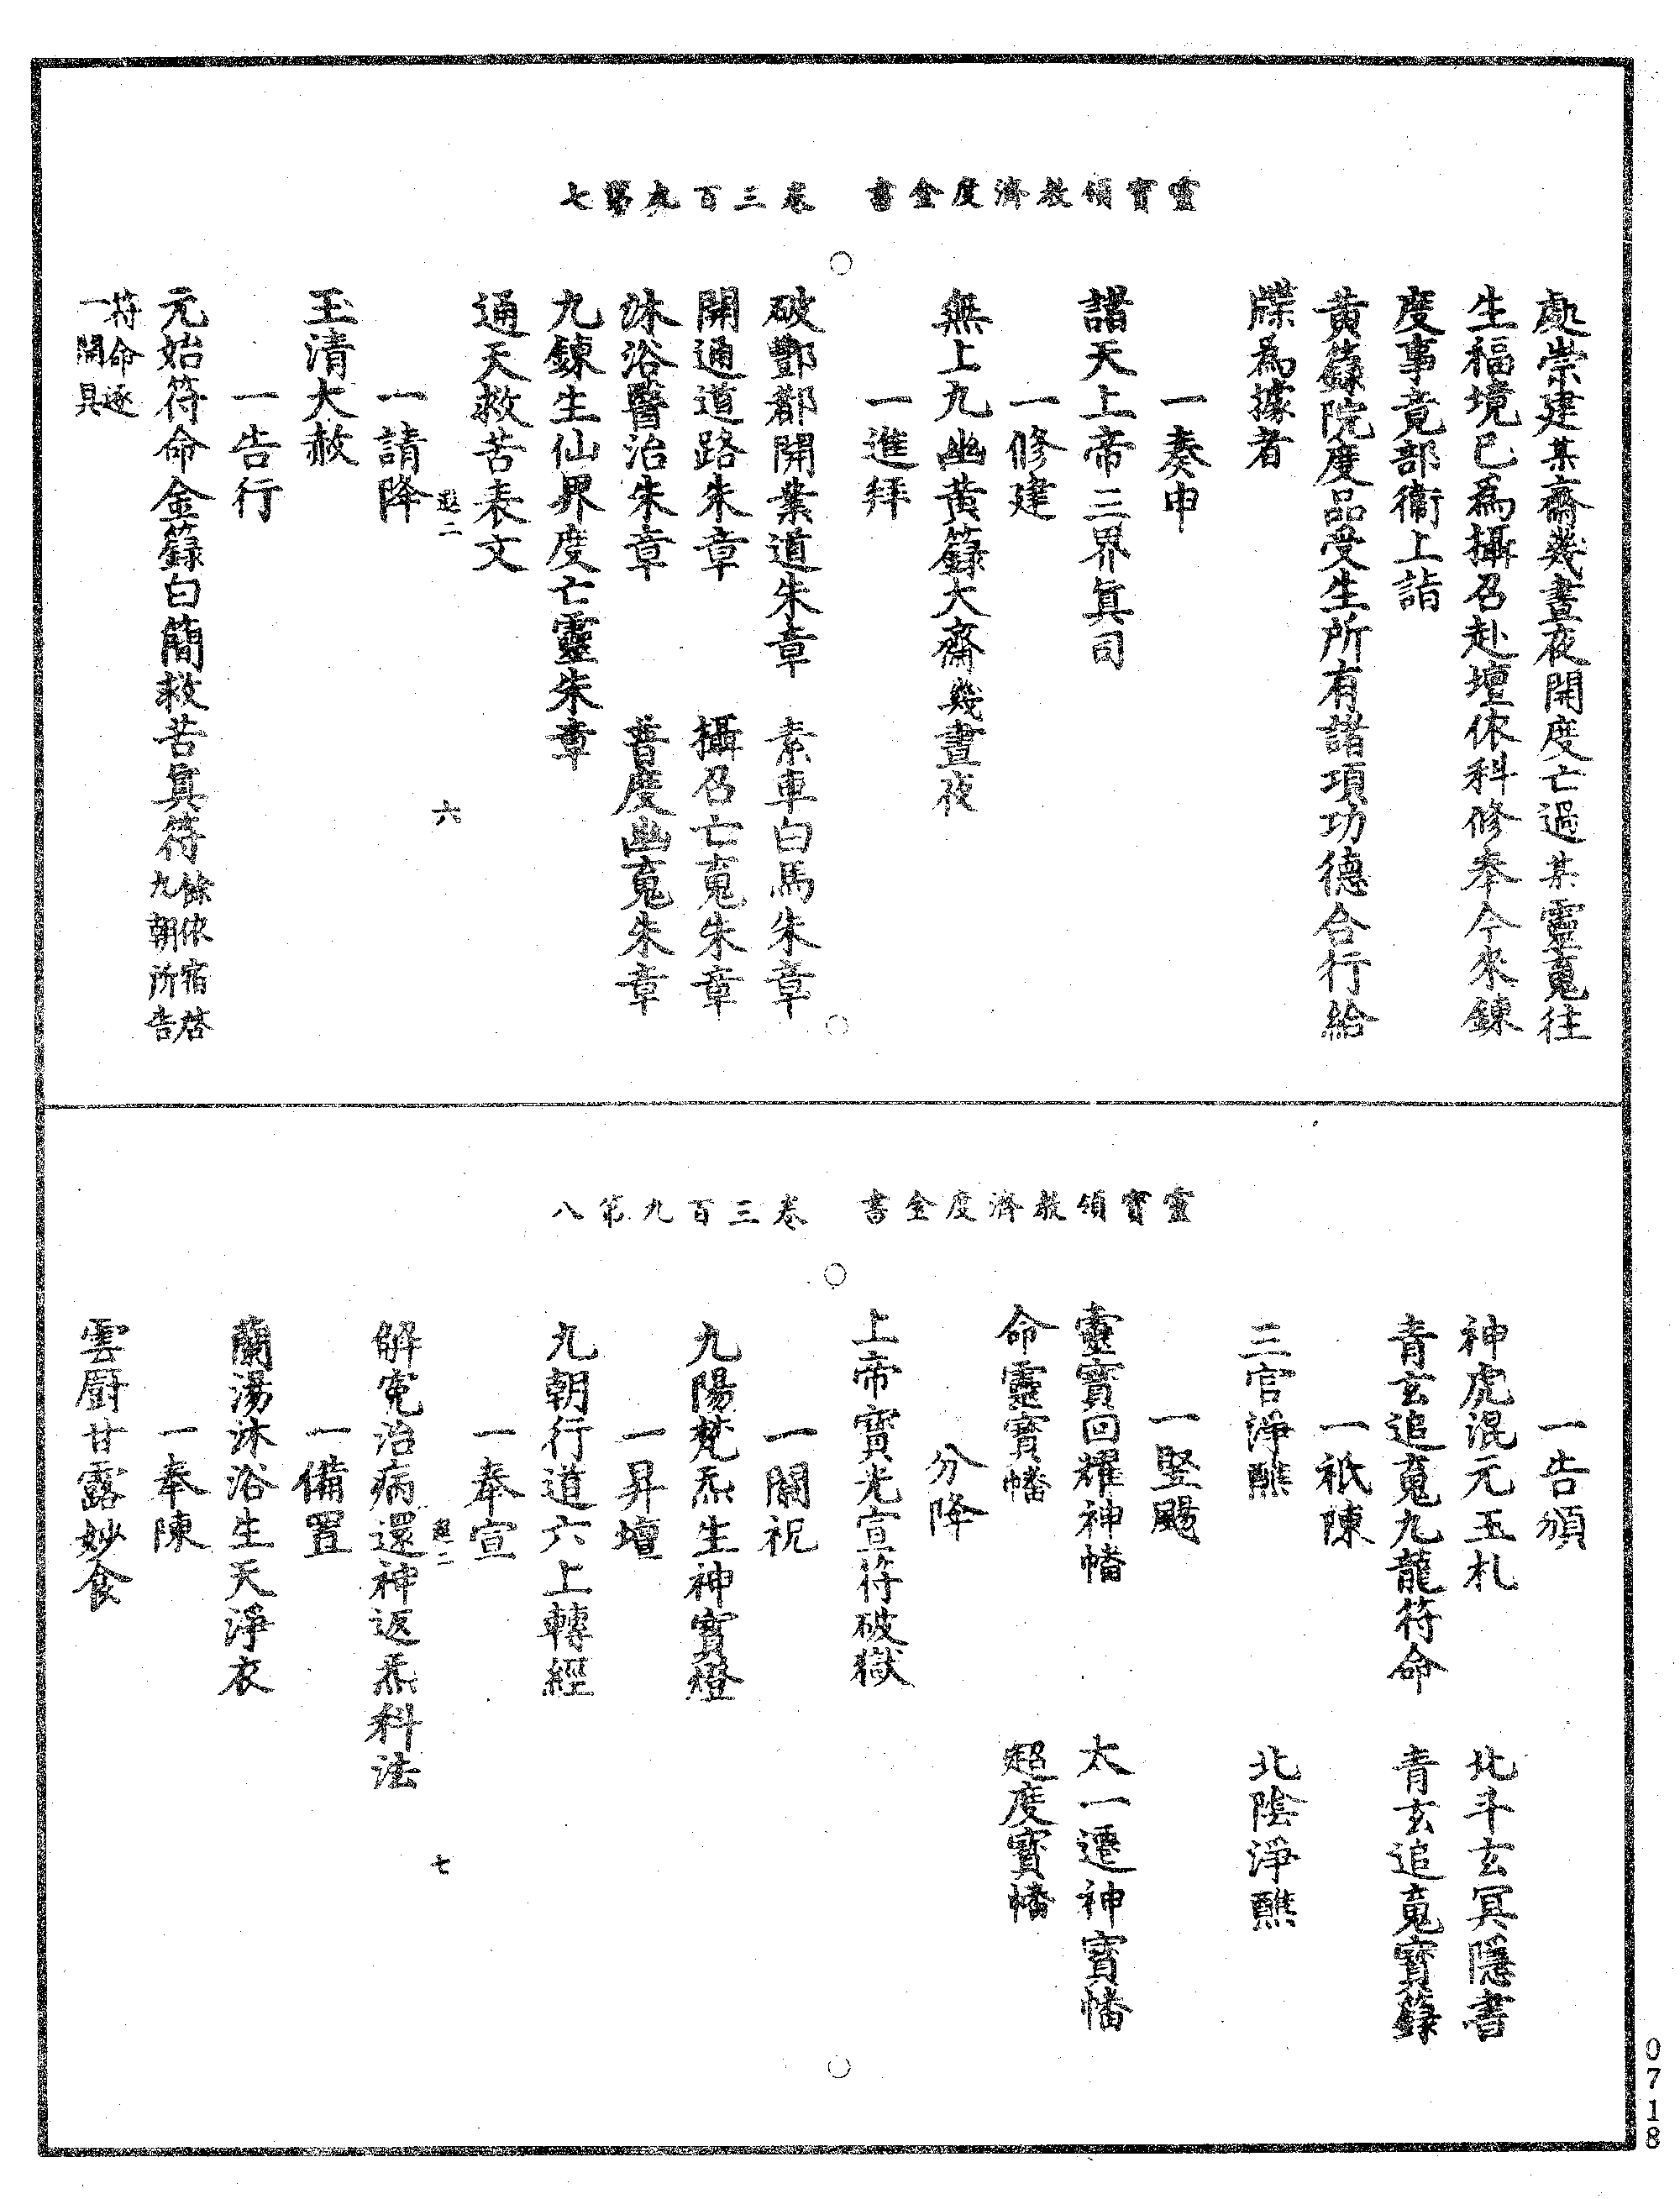 靈寶領教濟度金書　卷三百九第七
處崇建某齋幾晝夜開度亡過某靈䰟往
生福境已為攝召赴壇依科修奉今來鍊
度事竟部衛上詣
黃籙院度品受生所有諸項功德合行給
牒為據者
一奏申
諸天上帝三界真司
一修建
無上九幽黃籙大齋幾晝夜
一進拜
破酆都開業道朱章　素車白馬朱章
開通道路朱章　攝召亡䰟朱章
沐浴醫治朱章　普度幽䰟朱章
九鍊生仙界度亡靈朱章
通天救苦表文
二　六
一請降
玉清大赦
一告行
元始符命金籙白簡救苦真符餘依宿啓九朝所告
符命逐一開具
靈寶領教濟度金書　卷三百九第八
一告頒
神虎混元玉札　北斗玄冥隱書
青玄追䰟九龍符命　青玄追䰟寶籙
一祇陳
三官淨醮　北陰淨醮
一堅颺
靈寶回耀神幡　太一遷神寶幡
命靈寶幡　超度寶幡
分降
上帝寶光宣符破獄
一關祝
九陽梵炁生神寶燈
一昇壇
九朝行道六上轉經
一奉宣
解冤治病還神返炁科法
二　七
一備置
蘭湯沐浴生天淨衣
一奉陳
雲廚甘露妙食
0718